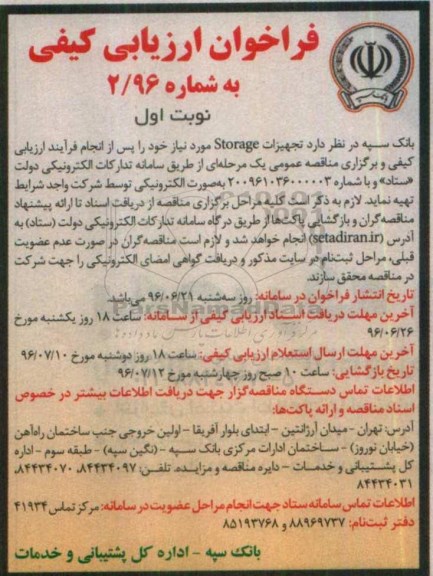 فراخوان ارزیابی کیفی
به شماره ۲/۹۶
نوبت اول
بانک سپه در نظر دارد تجهیزات Storage مورد نیاز خود را پس از انجام فرآیند ارزیابی
کیفی و برگزاری مناقصه عمومی یک مرحله‌ای از طریق سامانه تدارکات الکترونیکی دولت
«ستاد» و با شماره ۲۰۰۹۶۱۰۳۶۰۰۰۰۰۳ به‌صورت الکترونیکی توسط شرکت واجد شرایط
تهیه نماید. لازم به ذکر است کلیه مراحل برگزاری مناقصه از دریافت اسناد تا ارائه پیشنهاد
مناقصه‌گران و بازگشایی پاکت‌ها از طریق درگاه سامانه تدارکات الکترونیکی دولت (ستاد) به
آدرس (setadiran.ir) انجام خواهد شد و لازم است مناقصه‌گران در صورت عدم عضویت
قبلی، مراحل ثبت‌نام در سایت مذکور و دریافت گواهی امضای الکترونیکی را جهت شرکت
در مناقصه محقق سازند.
تاریخ انتشار فراخوان در سامانه: روز سه‌شنبه ۹۶/۰۶/۲۱ می‌باشد.
آخرین مهلت دریافت اسناد ارزیابی کیفی از سامانه: ساعت ۱۸ روز یکشنبه مورخ
۹۶/۰۶/۲۶
آخرین مهلت ارسال استعلام ارزیابی کیفی: ساعت ۱۸ روز دوشنبه مورخ ۹۶/۰۷/۱۰
تاریخ بازگشایی: ساعت ۱۰ صبح روز چهارشنبه مورخ ۹۶/۰۷/۱۲
اطلاعات تماس دستگاه مناقصه‌گزار جهت دریافت اطلاعات بیشتر در خصوص
اسناد مناقصه و ارائه پاکت‌ها:
آدرس: تهران - میدان آرژانتین - ابتدای بلوار آفریقا - اولین خروجی جنب ساختمان راه‌آهن
(خیابان نوروز) - ساختمان ادارات مرکزی بانک سپه - (نگین سپه) - طبقه سوم - اداره
کل پشتیبانی و خدمات - دایره مناقصه و مزایده. تلفن: ۸۴۴۳۴۰۹۷، ۸۴۴۳۴۰۷۰،
۸۴۴۳۴۰۳۱
اطلاعات تماس سامانه ستاد جهت انجام مراحل عضویت در سامانه: مرکز تماس ۴۱۹۳۴
دفتر ثبت‌نام: ۸۸۹۶۹۷۳۷ و ۸۵۱۹۳۷۶۸
بانک سپه - اداره کل پشتیبانی و خدمات